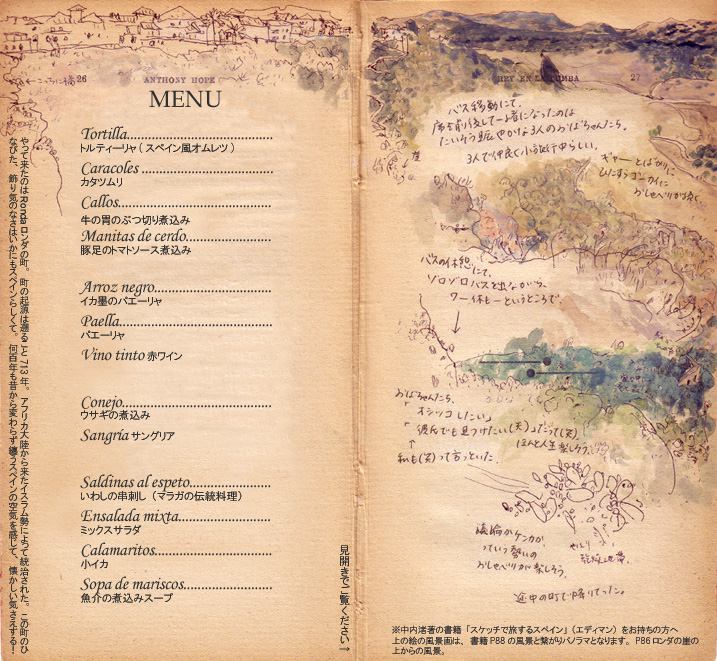 26
ANTHONY HOPE
MENU
Tortilla
トルティーリャ ( スペイン風オムレツ )
Caracoles
カタツムリ
Callos
牛の胃のぶつ切り煮込み
Manitas de cerdo
豚足のトマトソース煮込み
Arroz negro
イカ墨のパエーリャ
Paella
パエーリャ
Vino tinto 赤ワイン
Conejo
ウサギの煮込み
Sangría サングリア
Saldinas al espeto
いわしの串刺し（マラガの伝統料理）
Ensalada mixta
ミックスサラダ
Calamaritos
小イカ
Sopa de mariscos
魚介の煮込みスープ
やって来たのは Ronda ロンダの町。 町の起源は遡る AD 713 年。 アフリカ大陸から来たイスラム勢によって統治された。この町のひ
なびた、飾り気のなさはいかにもスペインらしくて。 何百年も昔から変わらず纏うスペインの空気を感じて、懐かしい気さえする！
見開きでご覧ください→
27
バス移動にて、
席を前後して一緒になったのは
たいそう賑やかな3人のおばちゃんたち。
3人で仲良く小旅行中らしい。
バスの休憩にて、
ゾロゾロバスを出ながら、
ワー休もーというところで、
おばちゃんたち、
「オシッコしたい」
「彼氏でも見つけたい(笑)」だって(笑)
ほんと人生楽しそう。
私も(笑)って言っといた。
議論かケンカか
っていう勢いの
おしゃべりが楽しそう。
途中の町で降りてった。
※中内渚著の書籍「スケッチで旅するスペイン」（エディマン）をお持ちの方へ
上の絵の風景画は、書籍 P88 の風景と繋がりパノラマとなります。P86 ロンダの崖の
上からの風景。